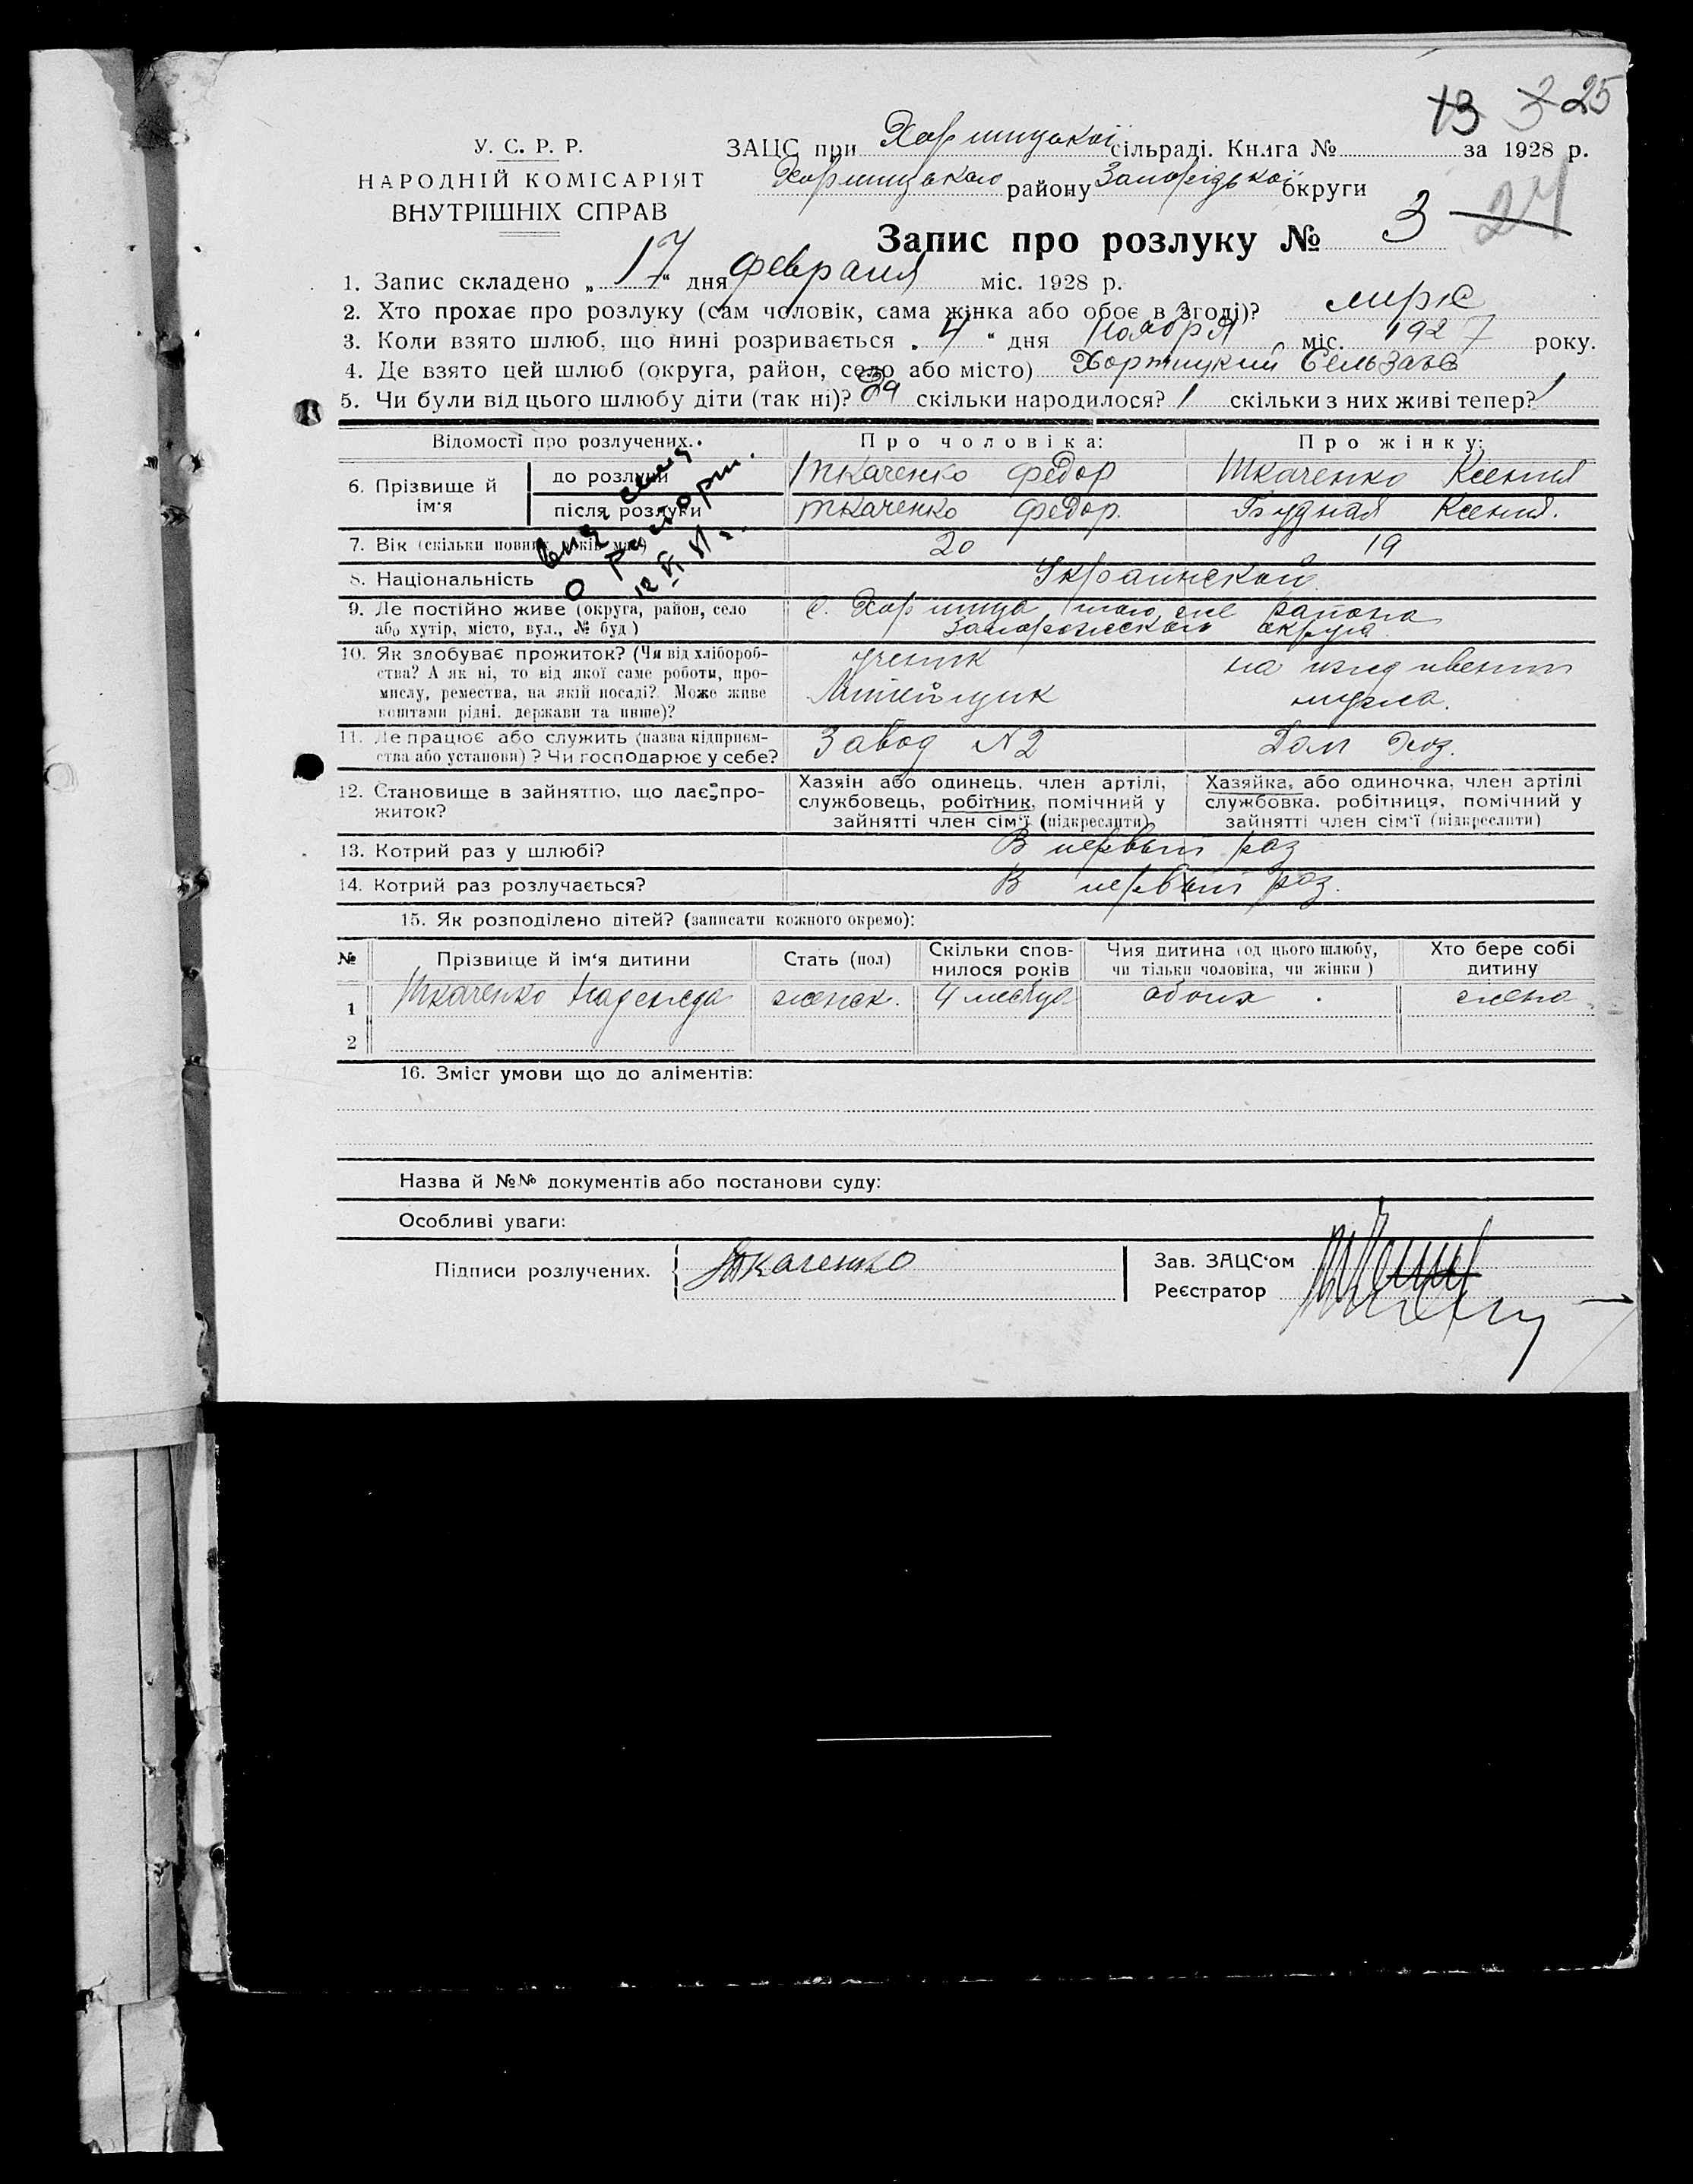 13 3 25
У. С. Р. Р.
НАРОДНІЙ КОМІСАРІЯТ
ВНУТРІШНІХ СПРАВ
ЗАЦС при Хортицької сільраді. Книга № за 1928 р.
Хортицького району Запорізької округи
Запис про розлуку № 3 24
1. Запис складено „ 17 “ дня февраля міс. 1928 р.
2. Хто прохає про розлуку (сам чоловік, сама жінка або обоє в згоді)?
3. Коли взято шлюб, що нині розривається „ 4 “ дня ноября міс. 1927 року.
4. Де взято цей шлюб (округа, район, село або місто) Хортицкий Сельзагс
5. Чи були від цього шлюбу діти (так ні)? Да скільки народилося? 1 скільки з них живі тепер? 1
Відомості про розлучених. Про чоловіка: Про жінку:
6. Прізвище й ім‘я
до розлуки Ткаченко Федор Ткаченко Ксения
після розлуки Ткаченко Федор. Будная Ксения.
7. Вік (скільки повних років має) 20 19
8. Національність Украинской
9. Де постійно живе (округа, район, село або хутір, місто, вул., № буд) с. Хортица того же района
Запорожского округа
10. Як здобуває прожиток? (Чи від хлібороб-
ства? А як ні, то від якої саме роботи, про-
мислу, ремества, на якій посаді? Може живе
коштами рідні, держави та инше)?
ученик
Литейщик
на иждивении
мужа.
11. Де працює або служить (назва підприєм-
ства або установи)? Чи господарює у себе?
Завод N2
Дом хоз.
12. Становище в зайняттю, що дає про-
житок?
Хазяін або одинець, член артілі,
службовець, робітник, помічний у
зайнятті член сім‘ї (підкреслити)
Хазяйка, або одиночка, член артілі
службовка, робітниця, помічний у
зайнятті член сім‘ї (підкреслити)
13. Котрий раз у шлюбі? В первый раз
14. Котрий раз розлучається? В первый раз.
15. Як розподілено дітей? (записати кожного окремо):
№ Прізвище й ім‘я дитини Стать (пол) Скільки спов-
нилося років Чия дитина (од цього шлюбу,
чи тільки чоловіка, чи жінки) Хто бере собі
дитину
1 Ткаченко Надежда женск. 4 месяца обоих жена
2
16. Зміст умови що до аліментів:
Назва й №№ документів або постанови суду:
Особливі уваги:
Підписи розлучених. Ткаченко
Зав. ЗАЦС‘ом
Реєстратор